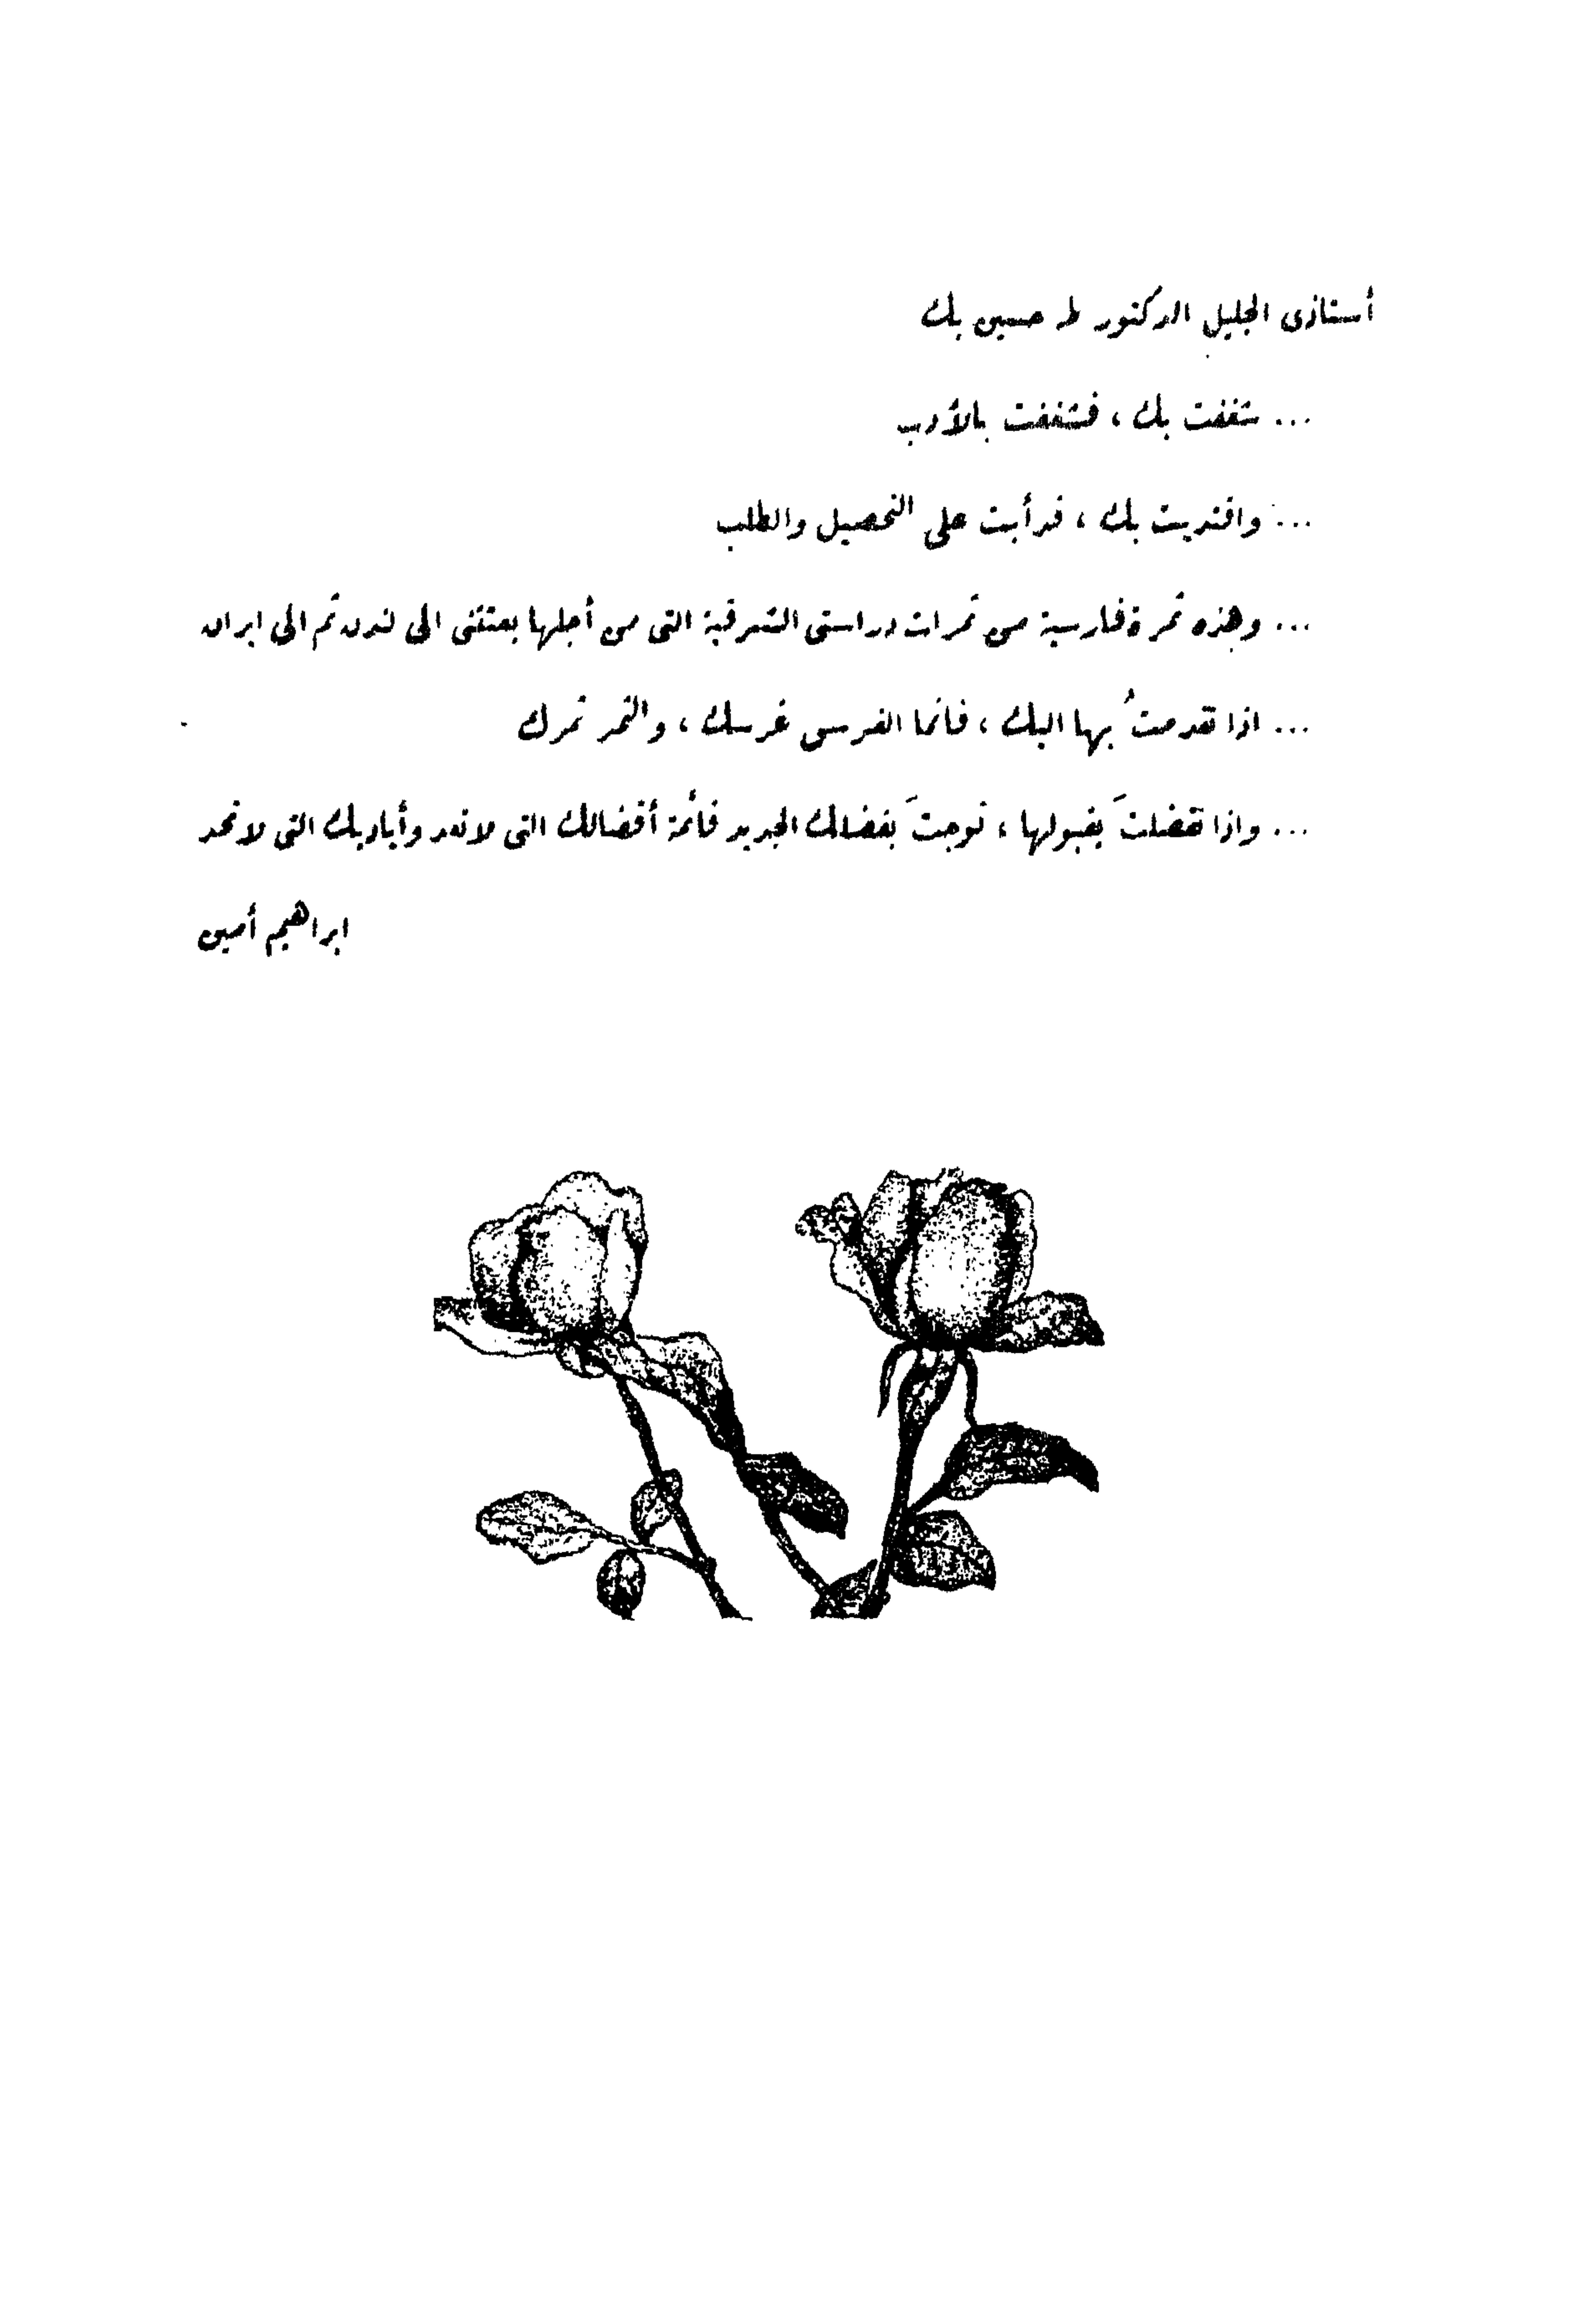 أستاذى الجليل الدكتور طه حسين بك
... شغفت بك ، فشغفت بالأدب
... واقتديت بك ، فدأبت على التحصيل والطلب
... وهذه ثمرة فارسية من ثمرات دراستى الشرقية التى من أجلها بعثتنى الى لندن ثم الى ايران
... اذا تقدمتُ بها اليك ، فانما الغرس غرسك ، والثمر ثمرك
... واذا تفضلتَ بقبولها ، توجتَ بفضلك الجديد قائمة أفضالك التى لا تعد وأياديك التى لا تحد
ابراهيم أمين